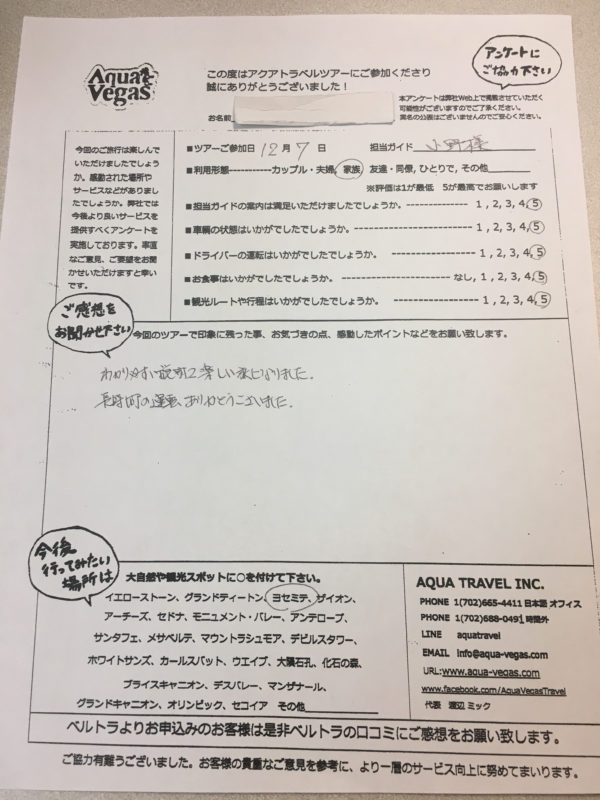 Aqua Vegas
この度はアクアトラベルツアーにご参加くださり
誠にありがとうございました！
アンケートに
ご協力下さい
お名前
本アンケートは弊社Web上で掲載させていただく
可能性がございますのでご了承ください。
実名の公表はございませんのでご安心ください。
今回のご旅行は楽しんで
いただけましたでしょう
か。感動された場所や
サービスなどがありまし
たでしょうか。弊社では
今後より良いサービスを
提供すべくアンケートを
実施しております。率直
なご意見、ご要望をお聞
かせいただけますと幸い
です。
■ツアーご参加日 12月 7 日 担当ガイド 小野様
■利用形態------------カップル・夫婦, 家族, 友達・同僚, ひとりで, その他
※評価は1が最低 5が最高でお願いします
■担当ガイドの案内は満足いただけましたでしょうか。 1 , 2, 3, 4, 5
■車輌の状態はいかがでしたでしょうか。 1 , 2, 3, 4, 5
■ドライバーの運転はいかがでしたでしょうか。 1 , 2, 3, 4, 5
■お食事はいかがでしたでしょうか。 なし, 1, 2, 3, 4, 5
■観光ルートや行程はいかがでしたでしょうか。 1 , 2, 3, 4, 5
ご感想を
お聞かせ下さい
今回のツアーで印象に残った事、お気づきの点、感動したポイントなどをお願い致します。
わかりやすい説明で楽しい旅になりました.
長時間の運転、ありがとうございました.
今後
行ってみたい
場所は
大自然や観光スポットに○を付けて下さい。
イエローストーン、グランドティートン、ヨセミテ、ザイオン、
アーチーズ、セドナ、モニュメント・バレー、アンテロープ、
サンタフェ、メサベルテ、マウントラシュモア、デビルスタワー、
ホワイトサンズ、カールスバット、ウエイブ、大隕石孔、化石の森、
ブライスキャニオン、デスバレー、マンザナール、
グランドキャニオン、オリンピック、セコイア その他
AQUA TRAVEL INC.
PHONE 1(702)665-4411 日本語 オフィス
PHONE 1(702)688-0491 時間外
LINE aquatravel
EMAIL info@aqua-vegas.com
URL:www.aqua-vegas.com
www.facebook.com/AquaVegasTravel
代表 渡辺 ミック
ベルトラよりお申込みのお客様は是非ベルトラの口コミにご感想をお願い致します。
ご協力有難うございました。お客様の貴重なご意見を参考に、より一層のサービス向上に努めてまいります。